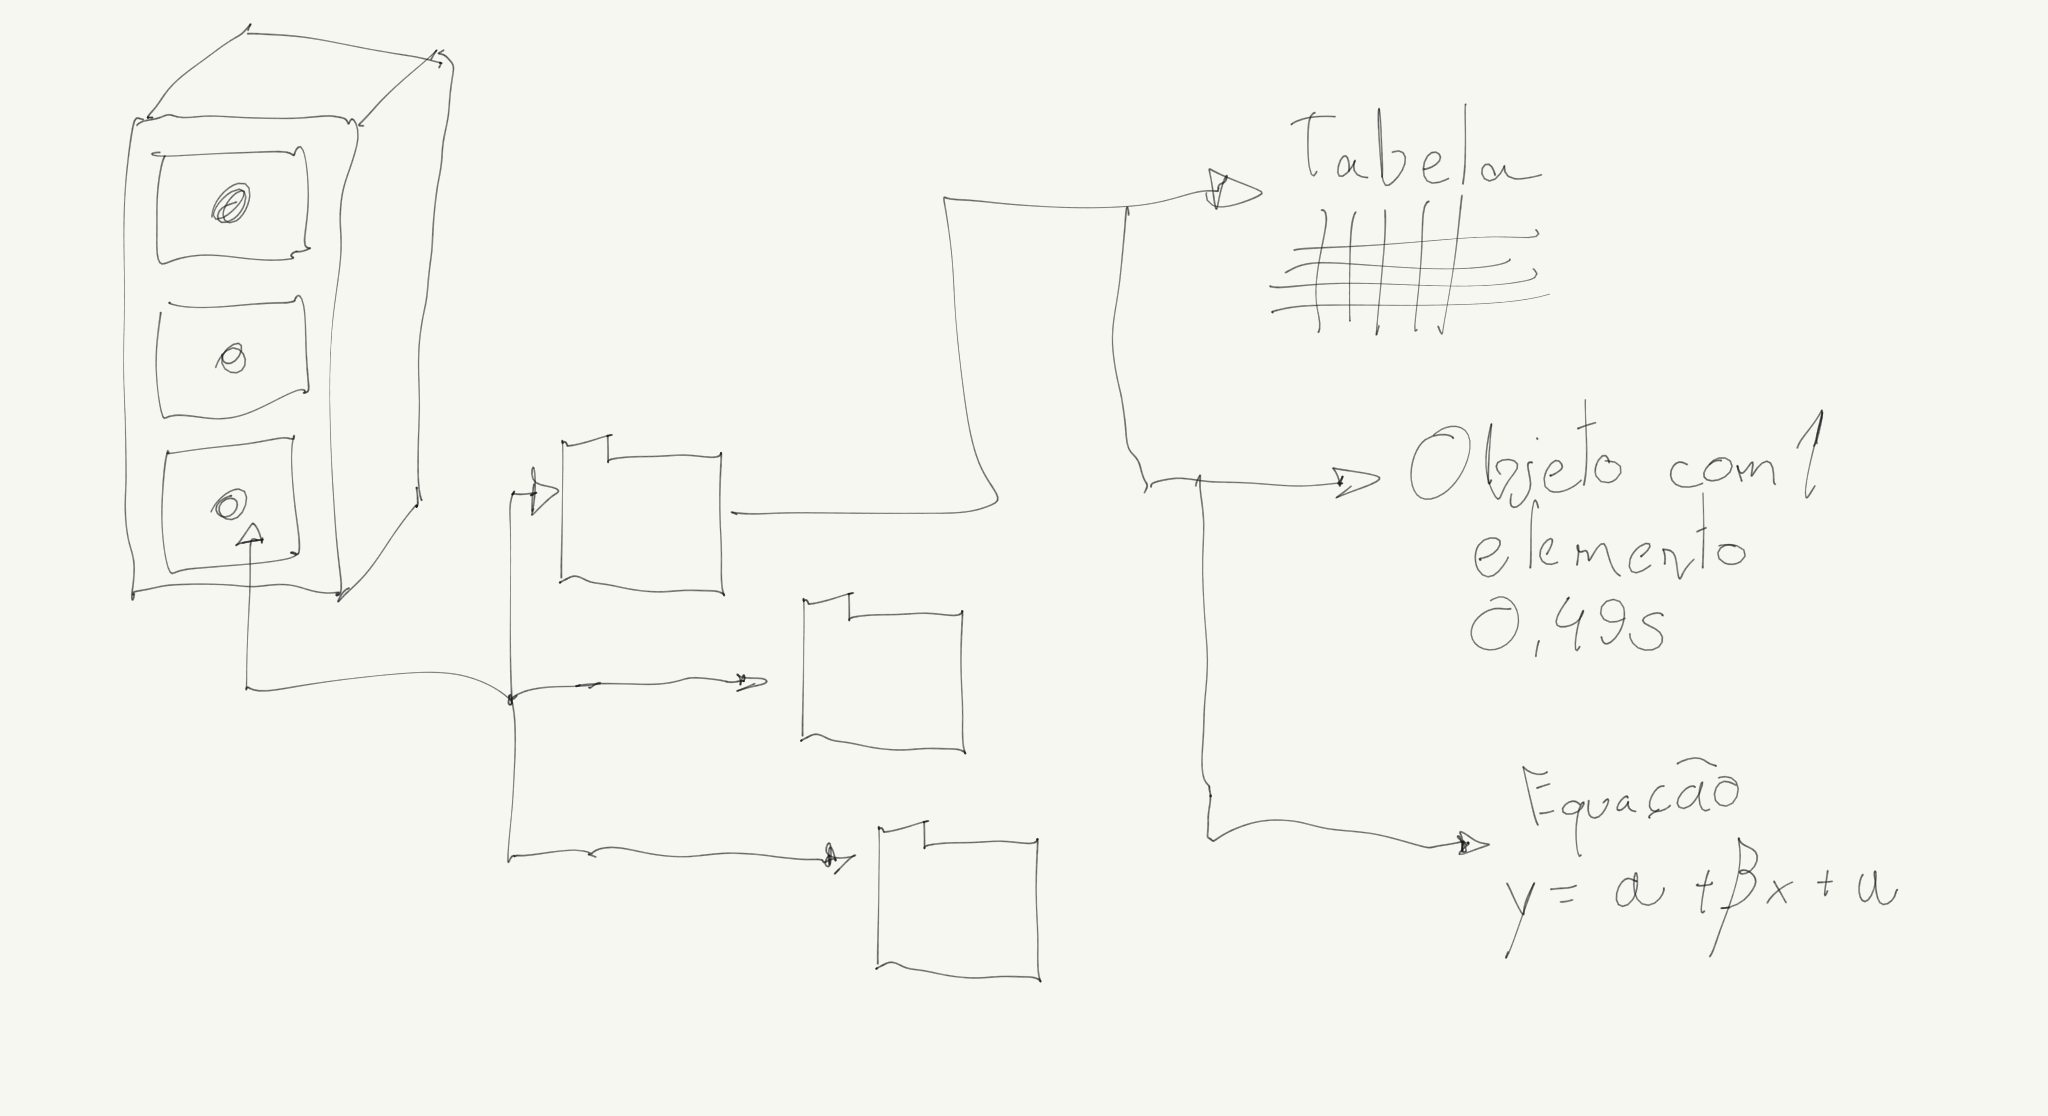 Tabela
Objeto com 1
elemento
0,495
Equação
y = α + βx + u